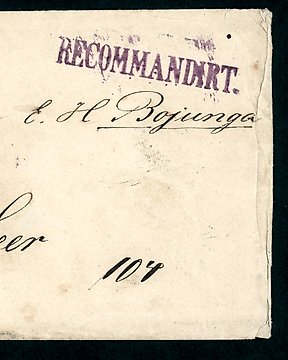 RECOMMANDIRT.
E. H Bojunga
eer
104